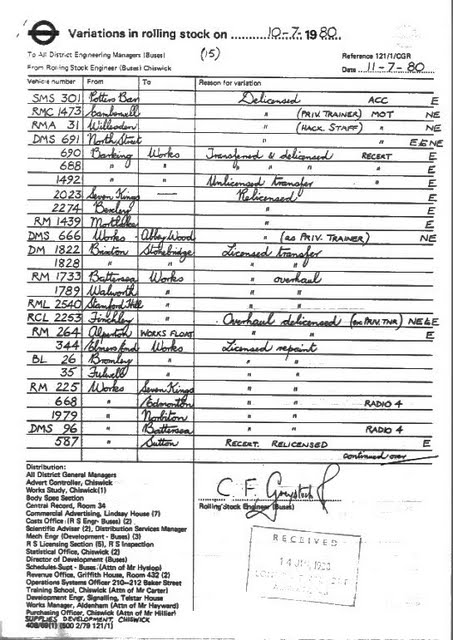 Variations in rolling stock on 10-7-1980
To All District Engineering Managers (Buses) (15) Reference 121/1/CGR
From Rolling Stock Engineer (Buses) Chiswick Date 11-7-80
Vehicle number From To Reason for variation
SMS 301 Potters Bar Delicensed ACC E
RMC 1473 Camberwell " (PRIV. TRAINER) MOT NE
RMA 31 Willesden " (HACK. STAFF) " NE
DMS 691 North Street " " E E NE
690 Barking Works Transferred & delicensed RECERT E
688 " " " " " " E
1492 " " Unlicensed transfer " E
2023 Seven Kings — Relicensed E
2274 Bexley " E
RM 1439 Mortlake " E
DMS 666 Works Abbey Wood " (as PRIV. TRAINER) NE
DM 1822 Brixton Stonebridge Licensed transfer
1828 " " " "
RM 1733 Battersea Works " overhaul
1789 Walworth " " "
RML 2540 Stamford Hill " " "
RCL 2253 Finchley " Overhaul delicensed (ex PRIV. TNR) NE & E
RM 264 Alperton WORKS FLOAT " " E
344 Elmers End Works Licensed repaint
BL 26 Bromley " " "
35 Fulwell " " "
RM 225 Works Seven Kings " "
668 " Edmonton " " RADIO 4
1979 " Norbiton " "
DMS 96 " Battersea " " RADIO 4
587 " Sutton RECERT. RELICENSED E
continued over
Distribution:
All District General Managers
Advert Controller, Chiswick
Works Study, Chiswick (1)
Body Spec Section
Central Record, Room 34
Commercial Advertising, Lindsay House (7)
Costs Office (R S Engr- Buses) (2)
Scientific Adviser (2), Distribution Services Manager
Mech Engr (Development - Buses) (3)
R S Licensing Section (5), R S Inspection
Statistical Office, Chiswick (2)
Director of Development (Buses)
Schedules Supt - Buses (Attn of Mr Hyslop)
Revenue Office, Griffith House, Room 432 (2)
Operations Systems Officer 210-212 Baker Street
Training School, Chiswick (Attn of Mr Carter)
Development Engr, Signalling, Telstar House
Works Manager, Aldenham (Attn of Mr Hayward)
Purchasing Officer, Chiswick (Attn of Mr Hillier)
SUPPLIES DEVELOPMENT, CHISWICK
408/69(1) (500 2/79 121/1)
Rolling Stock Engineer (Buses)
RECEIVED
14 JUL 1980